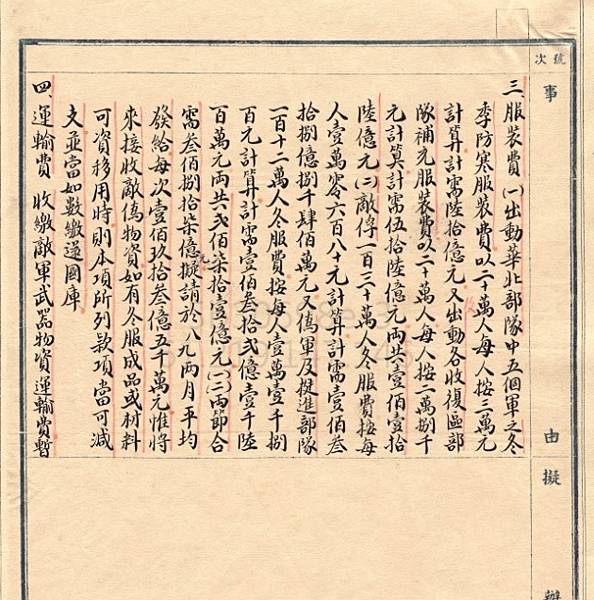 號次
事由擬辦
三、服裝費(一)出動華北部隊中五個軍之冬
季防寒服裝費以二十萬人每人按三萬元
計算計需陸拾億元又出動各收復區部
隊補充服裝費以二十萬人每人按二萬捌千
元計算計需伍拾陸億元兩共壹佰壹拾
陸億元(二)敵俘一百三十萬人冬服費按每
人壹萬零六百八十元計算計需壹佰叁
拾捌億捌千肆佰萬元又偽軍及挺進部隊
一百十二萬人冬服費按每人壹萬一千捌
百元計算計需壹佰叁拾弍億壹千陸
百萬元兩共弍佰柒拾壹億元(一)(二)兩節合
需叁佰捌拾柒億元擬請於八九兩月平均
發給每次壹佰玖拾叁億五千萬元惟將
來接收敵偽物資如有冬服成品或材料
可資移用時則本項所列款項當可減
支並當如數繳還國庫
四、運輸費 收繳敵軍武器物資運輸費暫